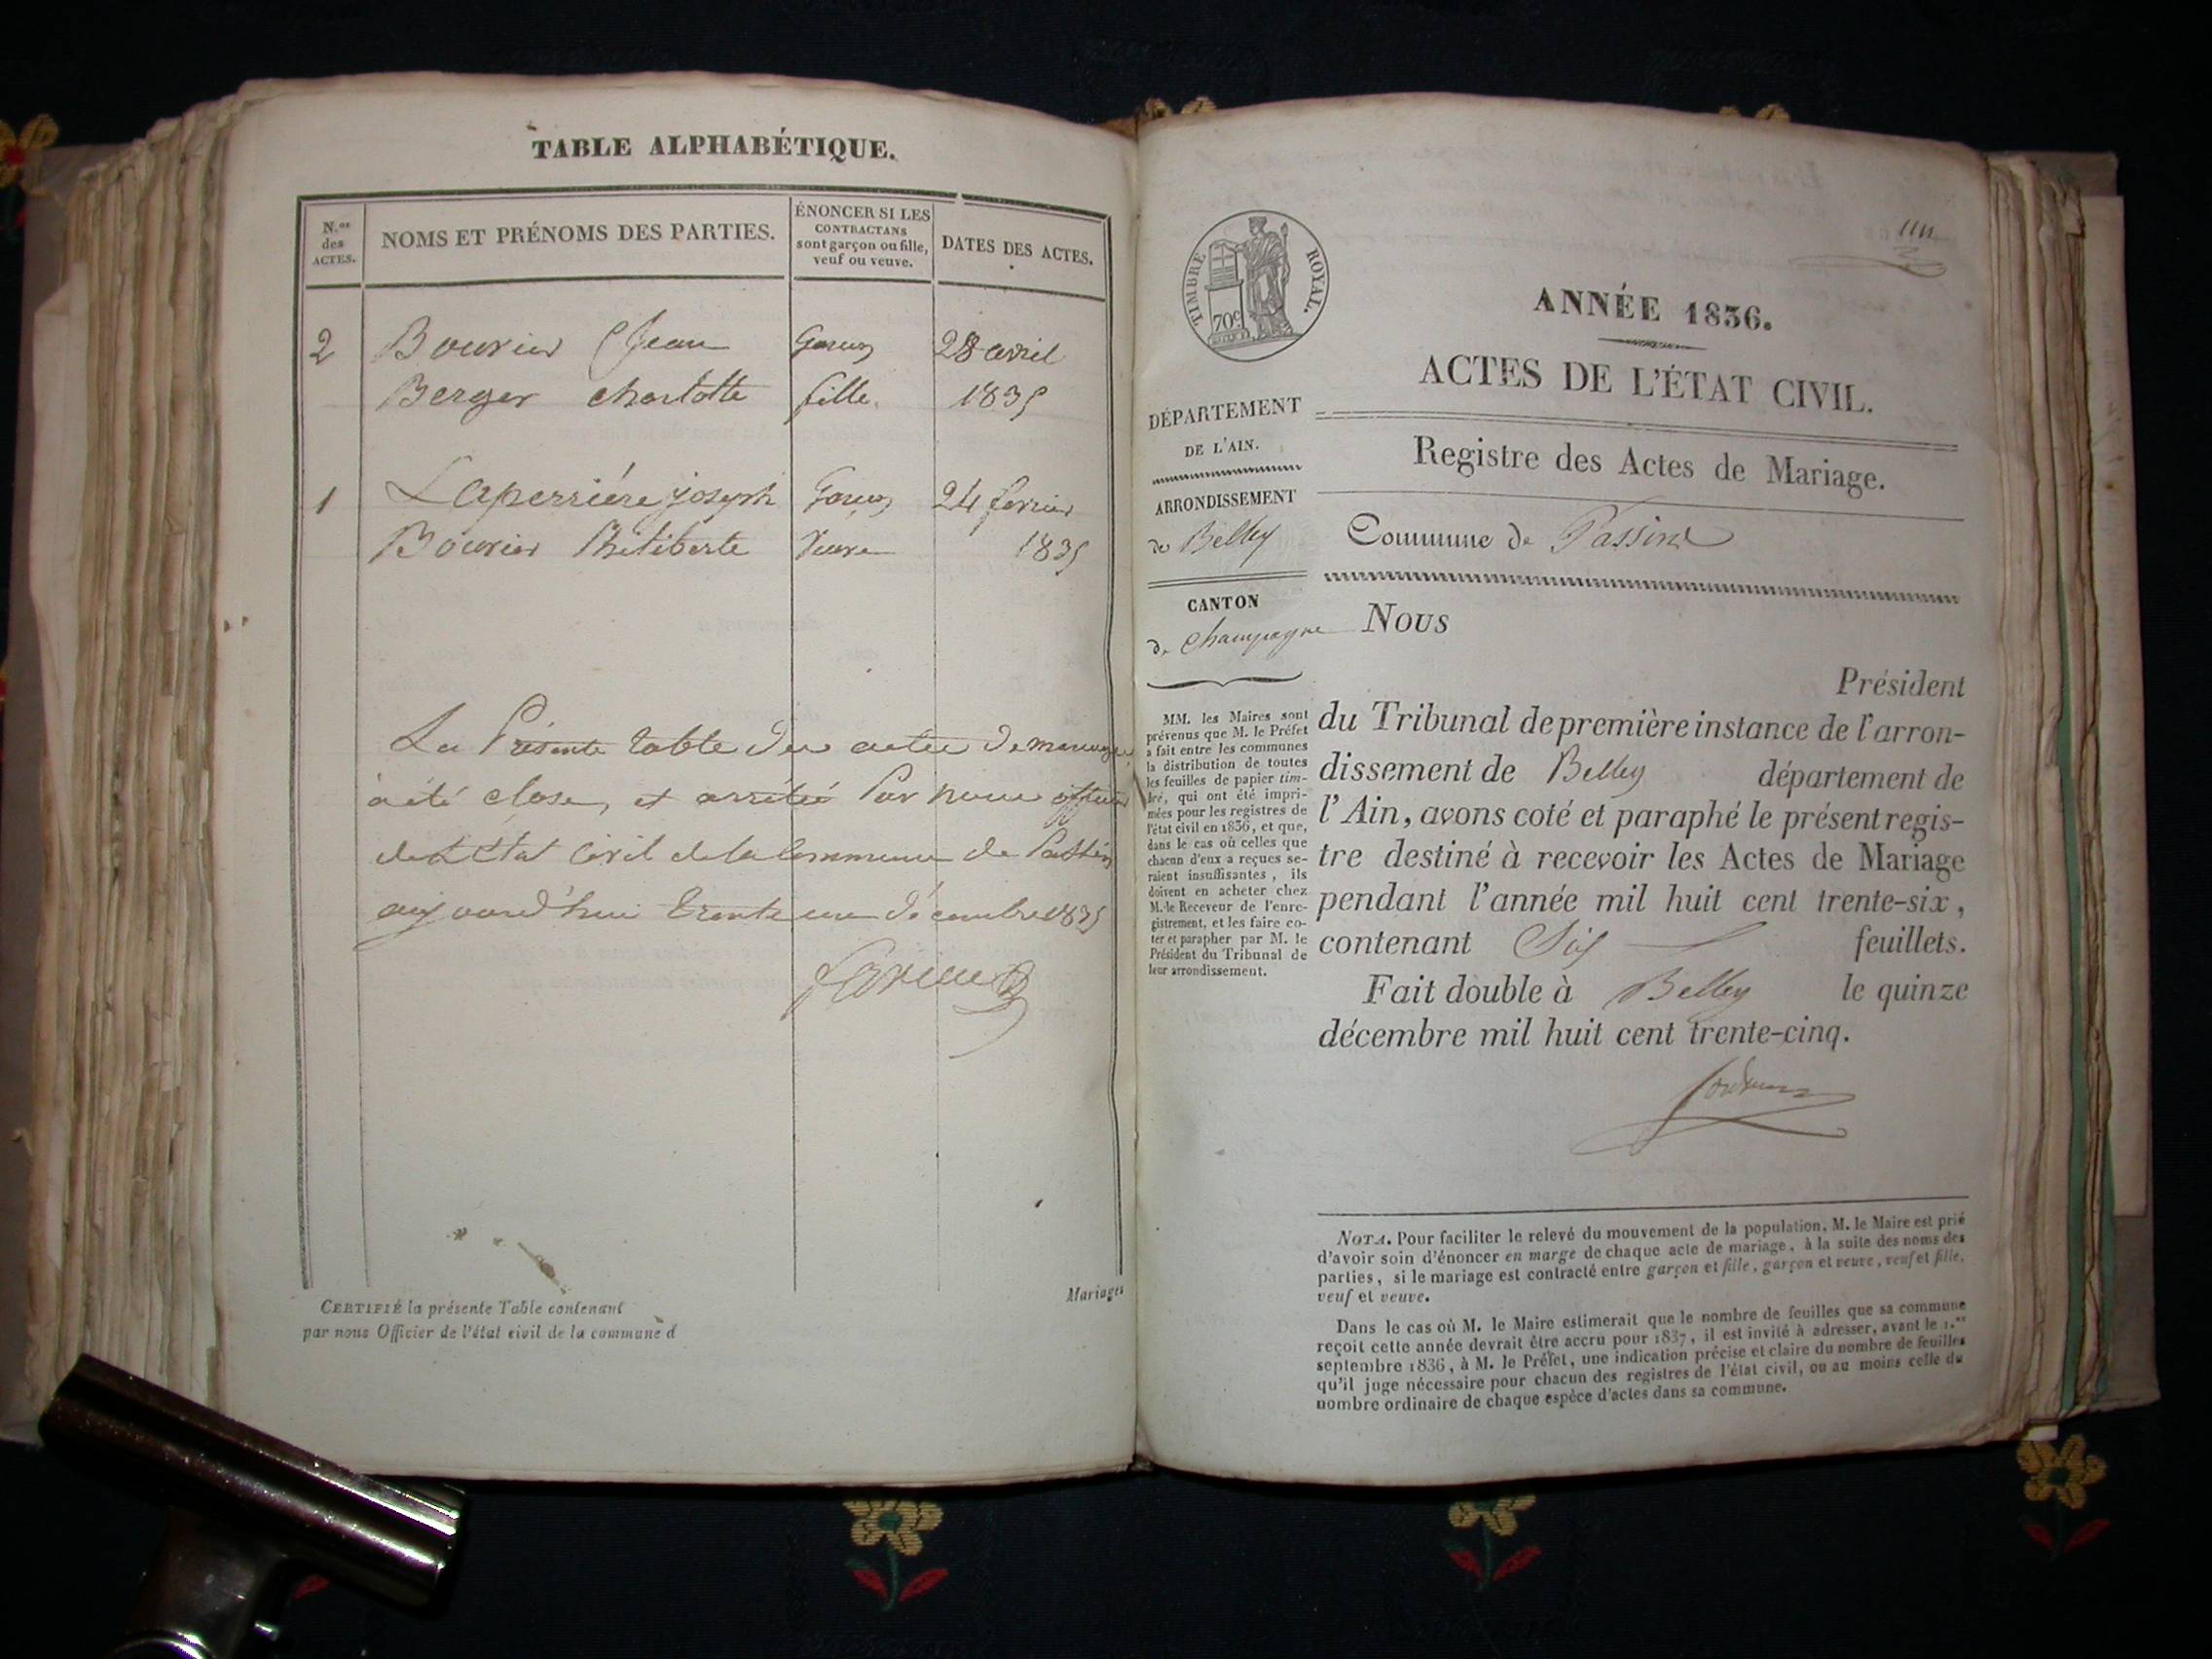 TABLE ALPHABÉTIQUE.
N.os des ACTES.
NOMS ET PRÉNOMS DES PARTIES.
ÉNONCER SI LES CONTRACTANS sont garçon ou fille, veuf ou veuve.
DATES DES ACTES.
2 Bouvier Jean Garçon 28 avril
Berger charlotte fille. 1835
1 Laperriére joseph Garçon 24 fevrier
Bouvier Philiberte Veuve 1835
La Présente table des actes de mariage
à été close, et arrêtée Par nous officier
de L'Etat Civil de la Commune de Passin
aujourd'hui trente un décembre 1835
CERTIFIÉ la présente Table contenant
par nous Officier de l'état civil de la commune d
Mariages
TIMBRE ROYAL.
70c
ANNÉE 1836.
ACTES DE L'ÉTAT CIVIL.
DÉPARTEMENT
DE L'AIN.
ARRONDISSEMENT
de Belley
CANTON
de champagne
MM. les Maires sont
prévenus que M. le Préfet
a fait entre les communes
la distribution de toutes
les feuilles de papier tim-
bré, qui ont été impri-
mées pour les registres de
l'état civil en 1836, et que,
dans le cas où celles que
chacun d'eux a reçues se-
raient insuffisantes, ils
doivent en acheter chez
M. le Receveur de l'enre-
gistrement, et les faire co-
ter et parapher par M. le
Président du Tribunal de
leur arrondissement.
Registre des Actes de Mariage.
Commune de Passin
Nous
Président
du Tribunal de première instance de l'arron-
dissement de Belley département de
l'Ain, avons coté et paraphé le présent regis-
tre destiné à recevoir les Actes de Mariage
pendant l'année mil huit cent trente-six,
contenant Six feuillets.
Fait double à Belley le quinze
décembre mil huit cent trente-cinq.
NOTA. Pour faciliter le relevé du mouvement de la population, M. le Maire est prié
d'avoir soin d'énoncer en marge de chaque acte de mariage, à la suite des noms des
parties, si le mariage est contracté entre garçon et fille, garçon et veuve, veuf et fille,
veuf et veuve.
Dans le cas où M. le Maire estimerait que le nombre de feuilles que sa commune
reçoit cette année devrait être accru pour 1837, il est invité à adresser, avant le 1.er
septembre 1836, à M. le Préfet, une indication précise et claire du nombre de feuilles
qu'il juge nécessaire pour chacun des registres de l'état civil, ou au moins celle du
nombre ordinaire de chaque espèce d'actes dans sa commune.